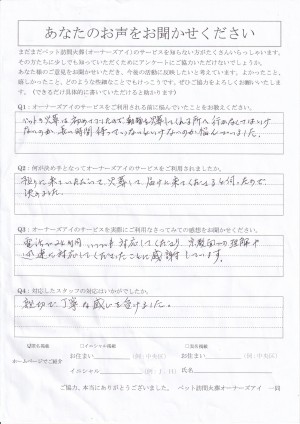 あなたのお声をお聞かせください
まだまだペット訪問火葬(オーナーズアイ)のサービスを知らない方がたくさんいらっしゃいます。
その方たちに少しでも知っていただくためにアンケートにご協力いただけないでしょうか。
あなた様のご意見をお聞かせいただき、今後の活動に反映したいと考えています。よかったこと、
嬉しかったこと、どのような些細なことでもけっこうです。ぜひご協力をよろしくお願いいたしま
す。(できるだけ具体的に書いていただけると助かります)
Q1:オーナーズアイのサービスをご利用される前に悩んでいたことをお教えください。
ペットの火葬は初めてだったので、動物を火葬してくれる所へ行かなくてはいけ
ないのか、長い時間待っていないといけないのか悩んでいました。
Q2:何が決め手となってオーナーズアイのサービスをご利用されましたか。
取りに来ていただいて、火葬して、届けに来てくださると伺ったので
決めました。
Q3:オーナーズアイのサービスを実際にご利用なさってみての感想をお聞かせください。
電話から24時間いつでも対応してくださり
迅速に対応してくださったことに感謝しています。
Q4:対応したスタッフの対応はいかがでしたか。
親切で丁寧な感じを受けました。
ホームページでご紹介
☑匿名掲載
□イニシャル掲載
お住まい (例:中央区)
イニシャル (例:J.H)
□実名掲載
お住まい (例:中央区)
氏名
ご協力、本当にありがとうございました。 ペット訪問火葬オーナーズアイ 一同